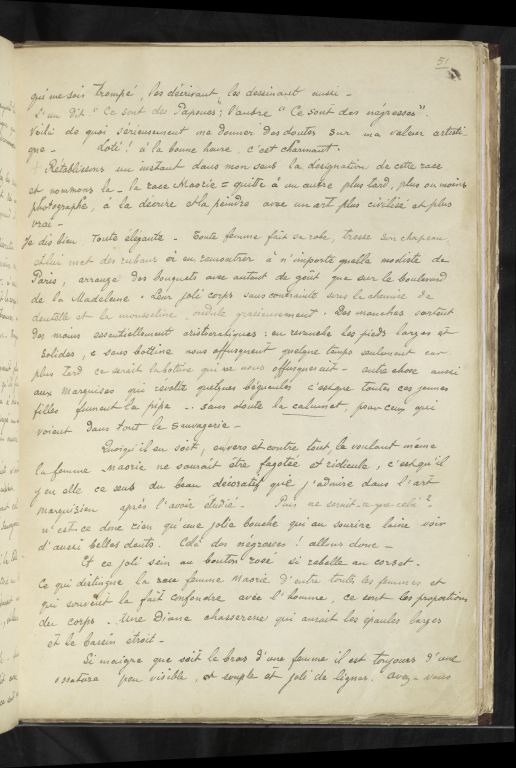 51
qui me soit trompé, les décrivant les dessinant aussi —
L'un dit "Ce sont des Papoues"; l'autre "Ce sont des négresses".
Voilà de quoi sérieusement me donner des doutes sur ma valeur artisti
que — Loti! à la bonne heure, c'est charmant.
Rétablissons un instant dans mon sens la désignation de cette race
et nommons la — la race Maorie — quitte à un autre plus tard, plus ou moins
photographe, à la décrire et la peindre avec un art plus civilisé et plus
vrai —
Je dis bien, toute élégante — Toute femme fait sa robe, tresse son chapeau
et lui met des rubans à en remontrer à n'importe quelle modiste de
Paris, arrange des bouquets avec autant de goût que sur le boulevard
de la Madeleine. Leur joli corps sans contrainte sous la chemise de
dentelle et la mousseline, ondule gracieusement. Des manches sortent
des mains essentiellement aristocratiques: en revanche les pieds larges et
solides, sans bottine nous offusquent quelque temps seulement car
plus tard ce serait la bottine qui nous offusquerait — autre chose aussi
aux Marquises qui révolte quelques bégueules c'est que toutes ces jeunes
filles fument la pipe — sans doute le calumet, pour ceux qui
voient dans tout la sauvagerie —
Quoiqu'il en soit, envers et contre tout, le voulant même
la femme Maorie ne saurait être fagotée et ridicule, c'est qu'il
y en elle ce sens du beau décoratif que j'admire dans l'art
Marquisien après l'avoir étudié — Puis ne serait-ce que cela?
n'est-ce donc rien qu'une jolie bouche qui au sourire laisse voir
d'aussi belles dents. Cela des négresses! allons donc —
Et ce joli sein au bouton rosé si rebelle au corset.
Ce qui distingue la femme Maorie d'entre toutes les femmes et
qui souvent la fait confondre avec l'homme, ce sont les proportions
du corps. Une Diane chasseresse qui aurait les épaules larges
et le bassin étroit —
Si maigre que soit le bras d'une femme il est toujours d'une
ossature peu visible, et souple et joli de lignes. Avez-vous